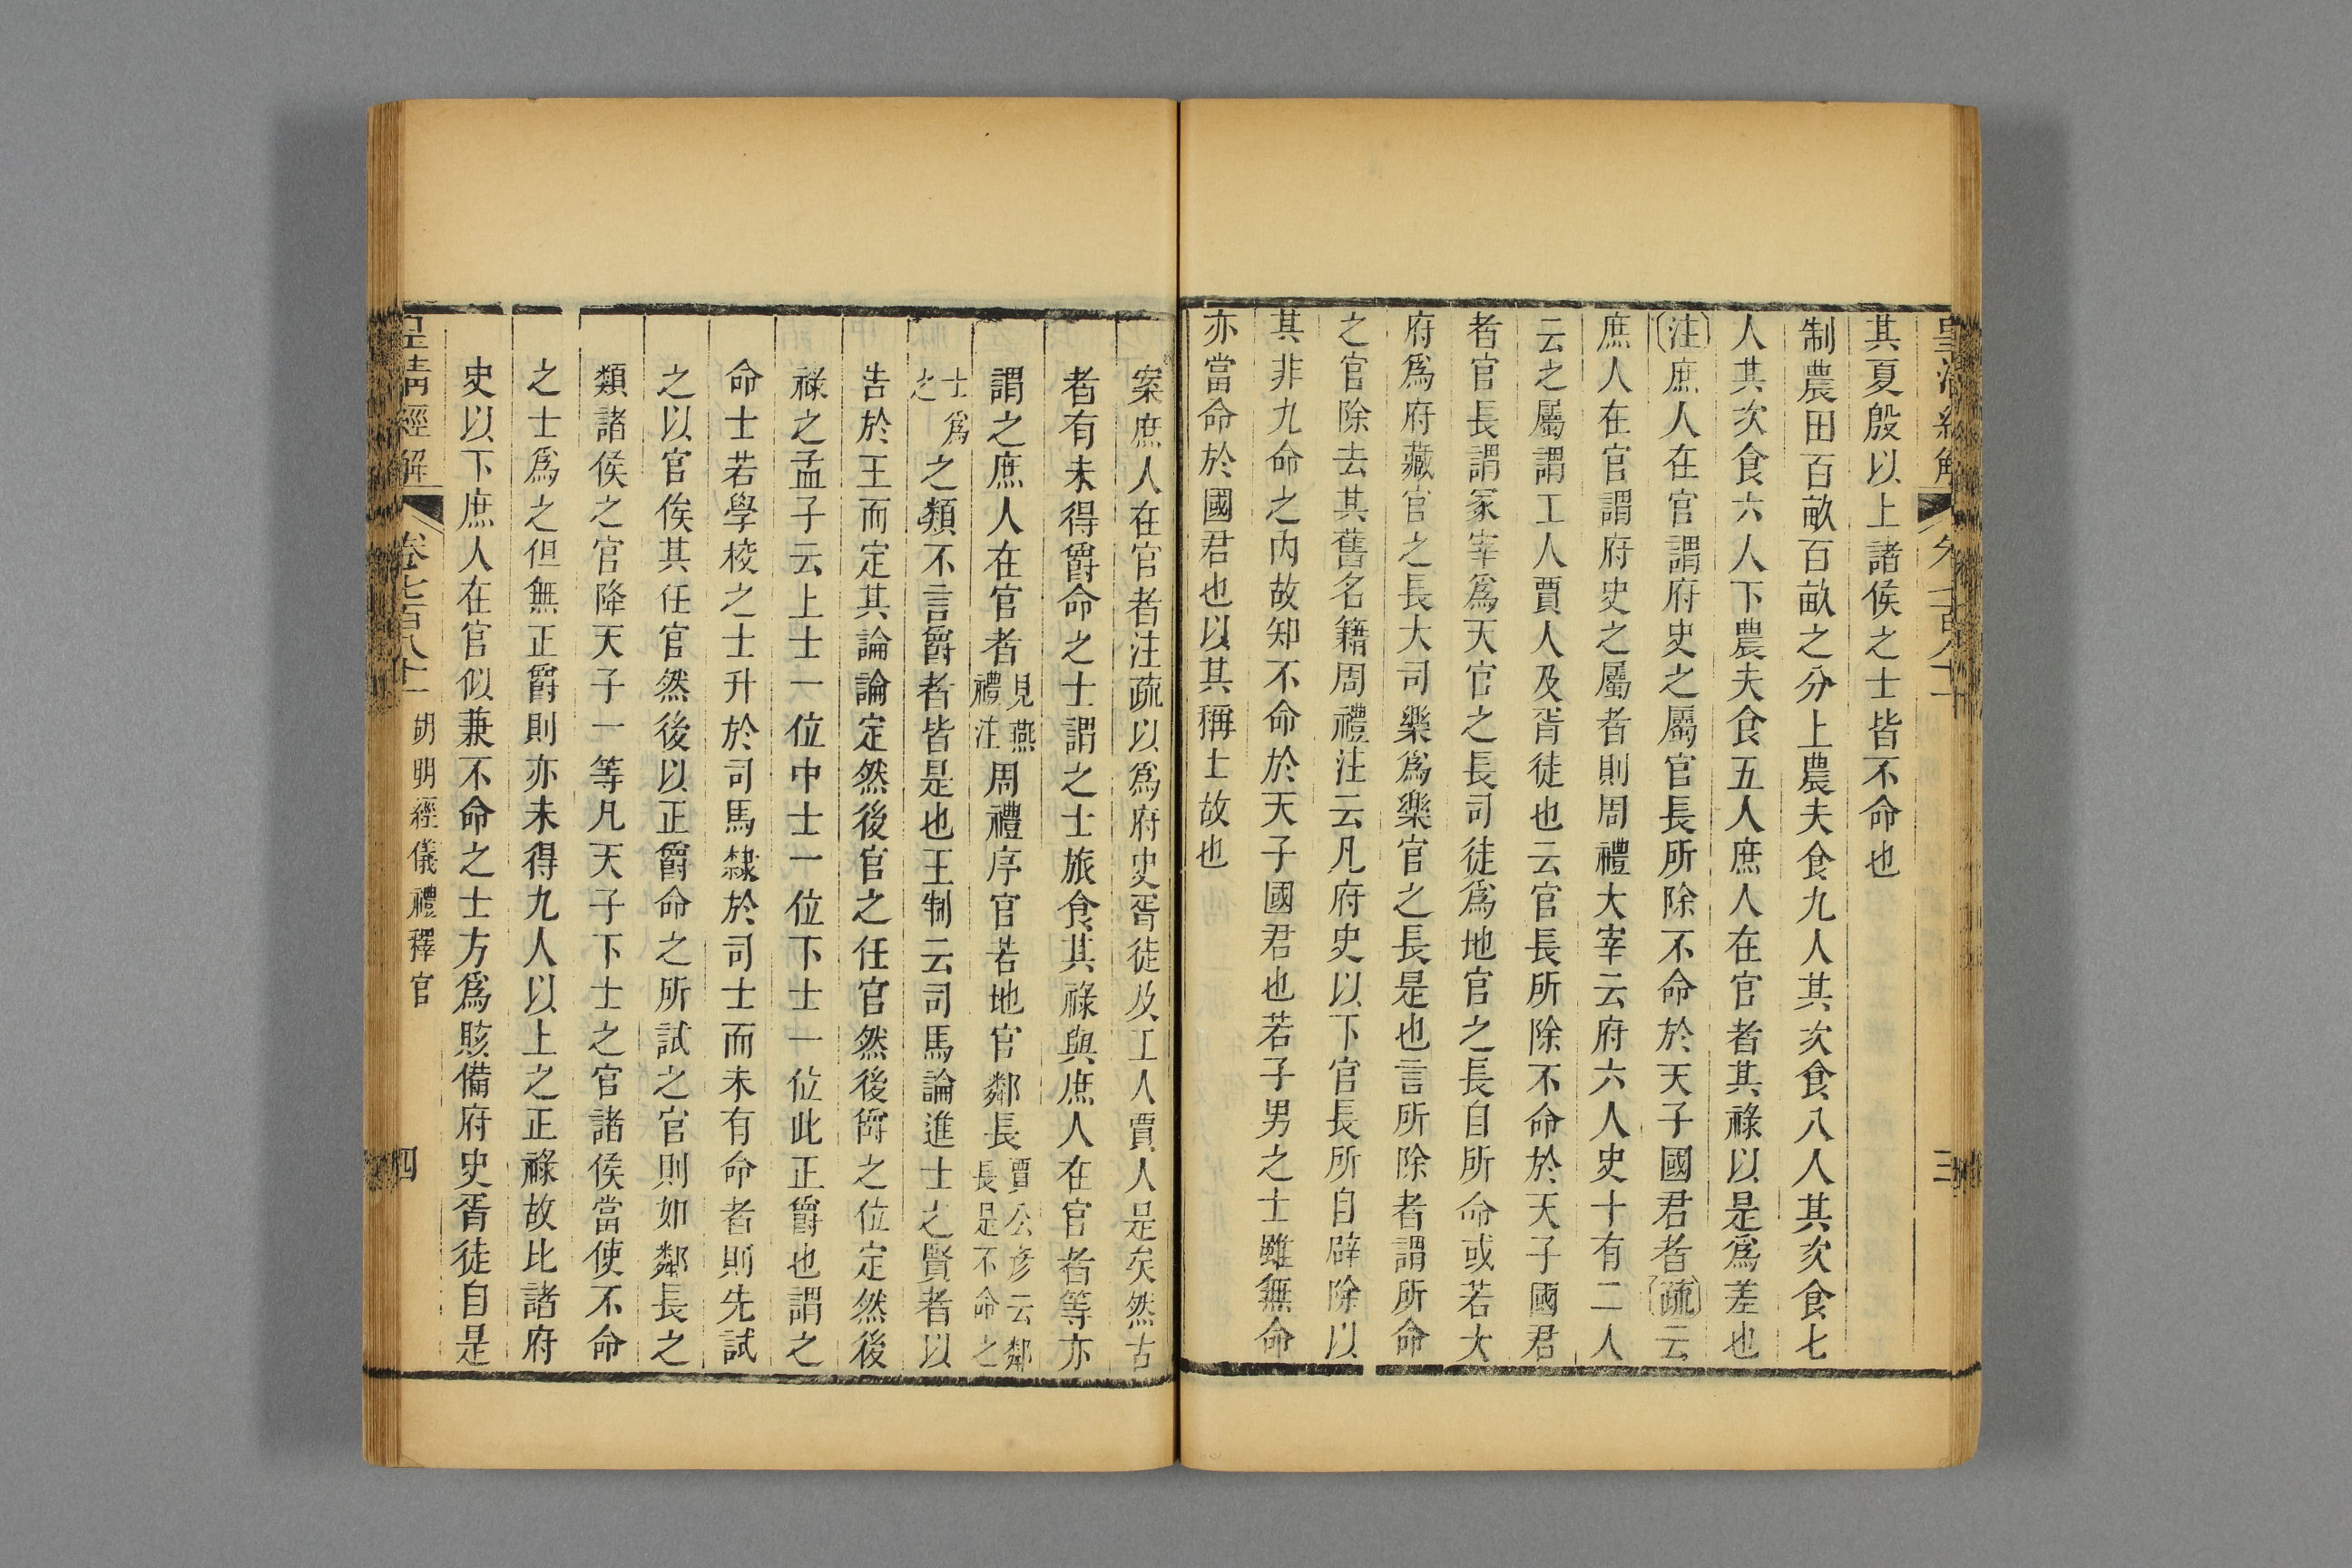 皇清經解 卷七百八十一 三
其夏殷以上諸侯之士皆不命也
制農田百畝百畝之分上農夫食九人其次食八人其次食七
人其次食六人下農夫食五人庶人在官者其祿以是爲差也
注庶人在官謂府史之屬官長所除不命於天子國君者疏云
庶人在官謂府史之屬者則周禮大宰云府六人史十有二人
云之屬謂工人賈人及胥徒也云官長所除不命於天子國君
者官長謂冢宰爲天官之長司徒爲地官之長自所命或若大
府爲府藏官之長大司樂爲樂官之長是也言所除者謂所命
之官除去其舊名籍周禮注云凡府史以下官長所自辟除以
其非九命之內故知不命於天子國君也若子男之士雖無命
亦當命於國君也以其稱士故也
案庶人在官者注疏以爲府史胥徒及工人賈人是矣然古
者有未得爵命之士謂之士旅食其祿與庶人在官者等亦
謂之庶人在官者見燕禮注周禮序官若地官鄰長賈公彥云鄰長是不命之
士爲之之類不言爵者皆是也王制云司馬論進士之賢者以
告於王而定其論論定然後官之任官然後爵之位定然後
祿之孟子云上士一位中士一位下士一位此正爵也謂之
命士若學校之士升於司馬隸於司士而未有命者則先試
之以官俟其任官然後以正爵命之所試之官則如鄰長之
類諸侯之官降天子一等凡天子下士之官諸侯當使不命
之士爲之但無正爵則亦未得九人以上之正祿故比諸府
史以下庶人在官似兼不命之士方爲賅備府史胥徒自是
皇清經解 卷七百八十一 胡明經儀禮釋官 四